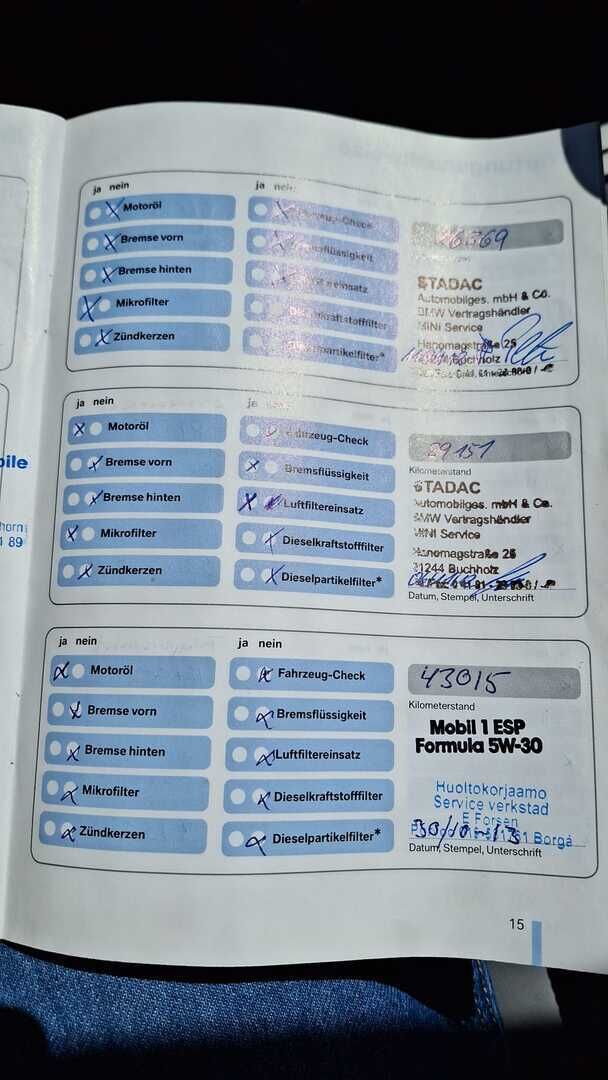 ja nein
Motoröl
Bremse vorn
Bremse hinten
Mikrofilter
Zündkerzen
ja nein
STADAC
Automobilges. mbH & Co.
BMW Vertragshändler
MINI Service
Hanomagstraße 25
Buchholz
ja nein
Motoröl
Bremse vorn
Bremse hinten
Mikrofilter
Zündkerzen
ja
Fahrzeug-Check
Bremsflüssigkeit
Luftfiltereinsatz
Dieselkraftstofffilter
Dieselpartikelfilter*
29151
Kilometerstand
STADAC
Automobilges. mbH & Co.
BMW Vertragshändler
MINI Service
Hanomagstraße 25
21244 Buchholz
Datum, Stempel, Unterschrift
ja nein
Motoröl
Bremse vorn
Bremse hinten
Mikrofilter
Zündkerzen
ja nein
Fahrzeug-Check
Bremsflüssigkeit
Luftfiltereinsatz
Dieselkraftstofffilter
Dieselpartikelfilter*
43015
Kilometerstand
Mobil 1 ESP
Formula 5W-30
Huoltokorjaamo
Service verkstad
E Forsen
30/10-13
Borgå
Datum, Stempel, Unterschrift
15